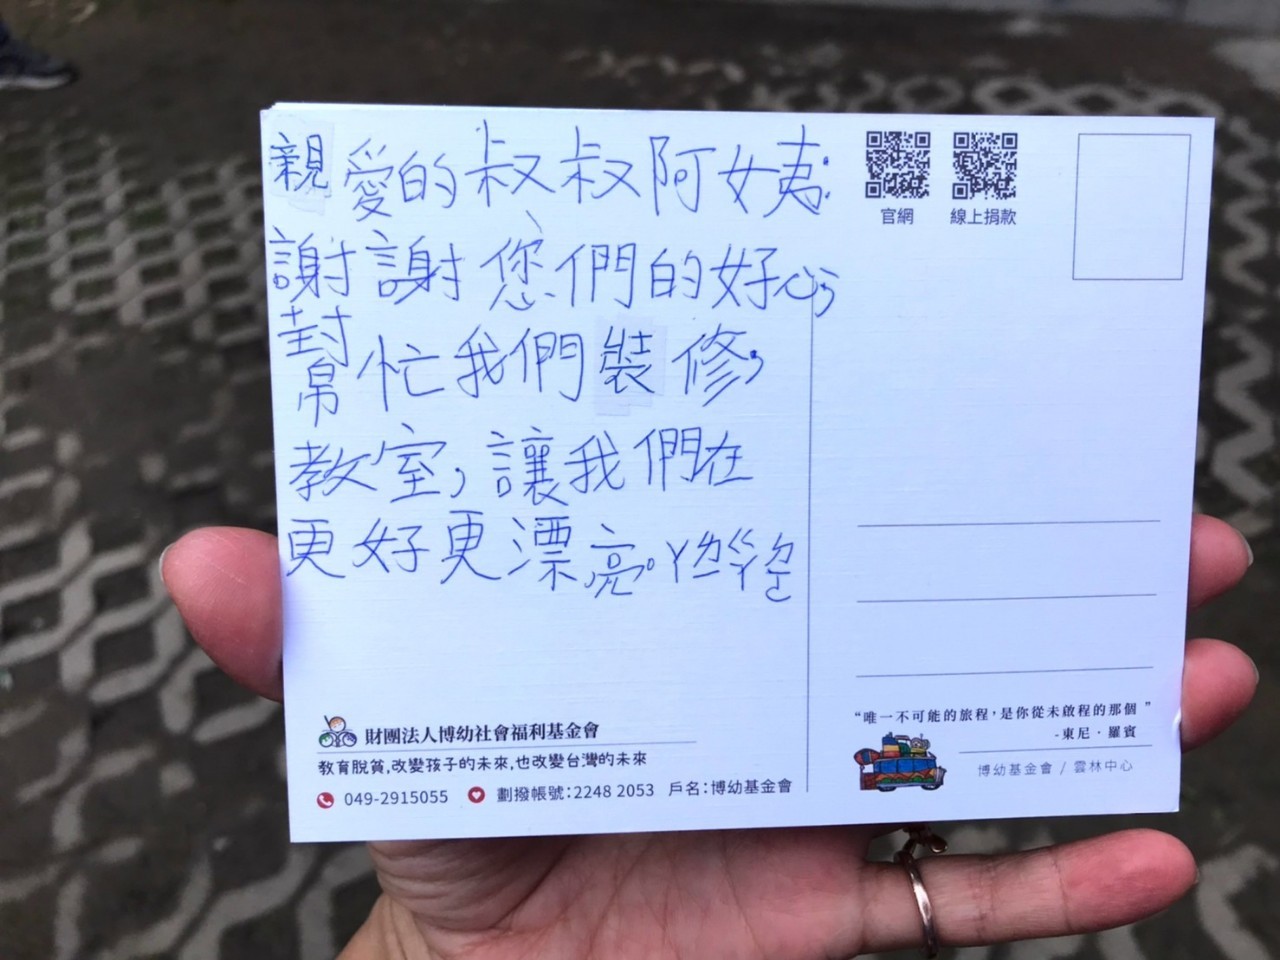 親愛的叔叔阿姨:
謝謝您們的好心,
幫忙我們裝修,
教室,讓我們在
更好更漂亮。
官網
線上捐款
財團法人博幼社會福利基金會
教育脫貧,改變孩子的未來,也改變台灣的未來
049-2915055 劃撥帳號:2248 2053 戶名:博幼基金會
“唯一不可能的旅程,是你從未啟程的那個”
-東尼·羅賓
博幼基金會 / 雲林中心